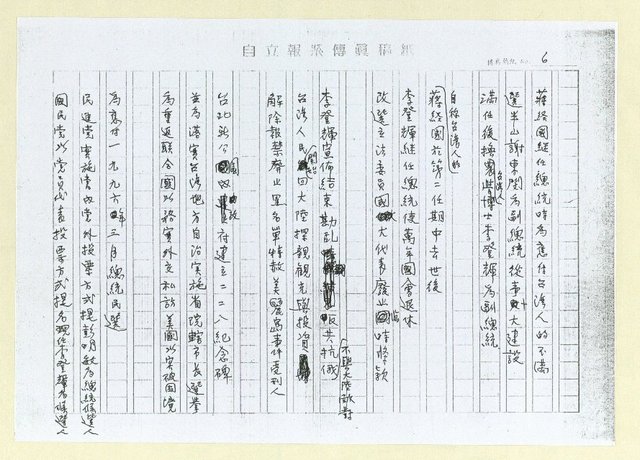 自立報系傳真稿紙
6
蔣經國繼任總統時為應付台灣人的不滿
選半山謝東閔為副總統從事十大建設
滿任後擢農業博士李登輝為副總統
台灣人
自稱台灣人的
蔣經國於第二任期中去世後
李登輝繼任總統使萬年國會退休
改選立法委員國大代表廢止臨時條款
李登輝宣佈結束勘亂反共抗俄
不與大陸敵對
台灣人民回大陸探親觀光與投資
開始
解除報禁廢止黑名單特赦美麗島事件受刑人
台北新公園改建立二二八紀念碑
市政府
並為落實台灣地方自治實施省院轄市長選舉
為重返聯合國以務實外交私訪美國以突破困境
為應付一九九六年三月總統民選
民進黨實施黨內黨外投票方式提彭明敏為總統候選人
國民黨以黨員代表投票方式提名現任李登輝為候選人